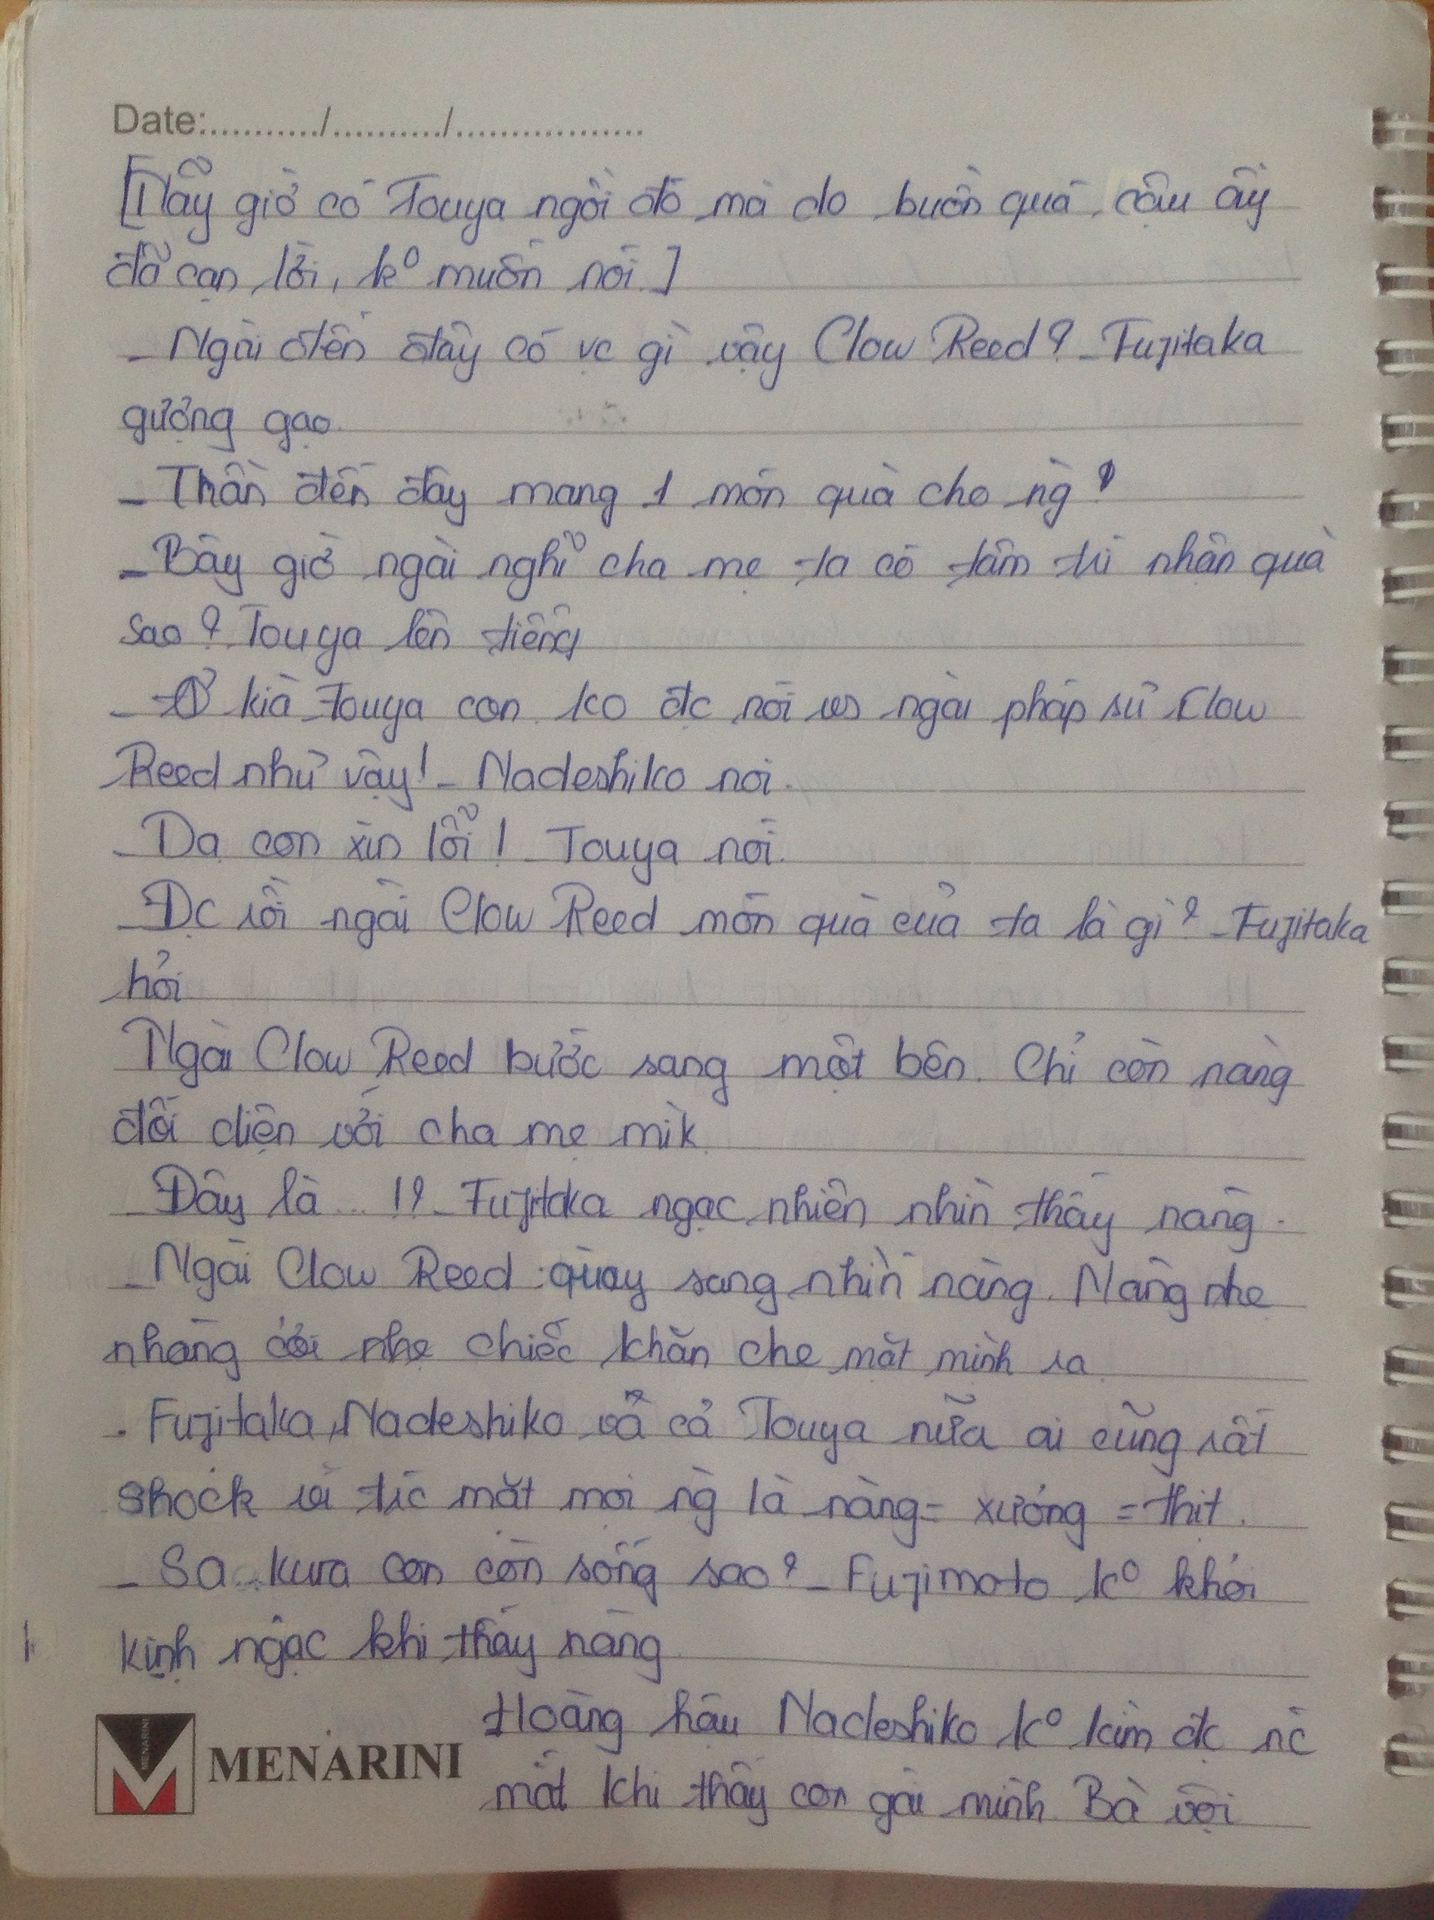 Date:............/.........../..................
[Nãy giờ có Touya ngồi đó mà do buồn quá, cậu ấy
đã cạn lời, k° muốn nói.]
- Ngài đến đây có vc gì vậy Clow Reed? - Fujitaka
gượng gạo.
- Thần đến đây mang 1 món quà cho ng`!
- Bây giờ ngài nghĩ cha mẹ ta có tâm trí nhận quà
sao? Touya lên tiếng
- Ơ kìa Touya con ko đc nói vs ngài pháp sư Clow
Reed như vậy! - Nadeshiko nói.
- Dạ con xin lỗi! - Touya nói.
- Đc rồi ngài Clow Reed món quà của ta là gì? - Fujitaka
hỏi
Ngài Clow Reed bước sang một bên. Chỉ còn nàng
đối diện với cha mẹ mìk
- Đây là...!? - Fujitaka ngạc nhiên nhìn thấy nàng.
- Ngài Clow Reed quay sang nhìn nàng. Nàng nhẹ
nhàng cởi nhẹ chiếc khăn che mặt mình ra.
. Fujitaka, Nadeshiko và cả Touya nữa ai cũng rất
shock vì trc mắt mọi ng` là nàng = xương = thịt.
- Sa...kura con còn sống sao? - Fujimoto k° khỏi
kinh ngạc khi thấy nàng.
Hoàng hậu Nadeshiko k° kìm đc nc
mắt khi thấy con gái mình. Bà vội
MENARINI